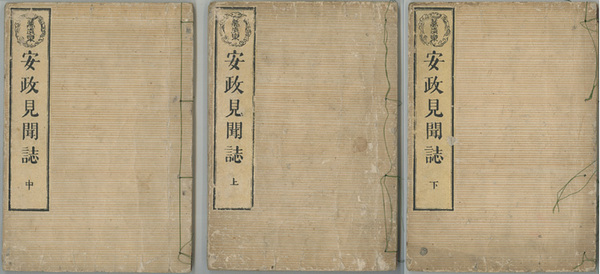 安政見聞誌
中
安政見聞誌
上
安政見聞誌
下